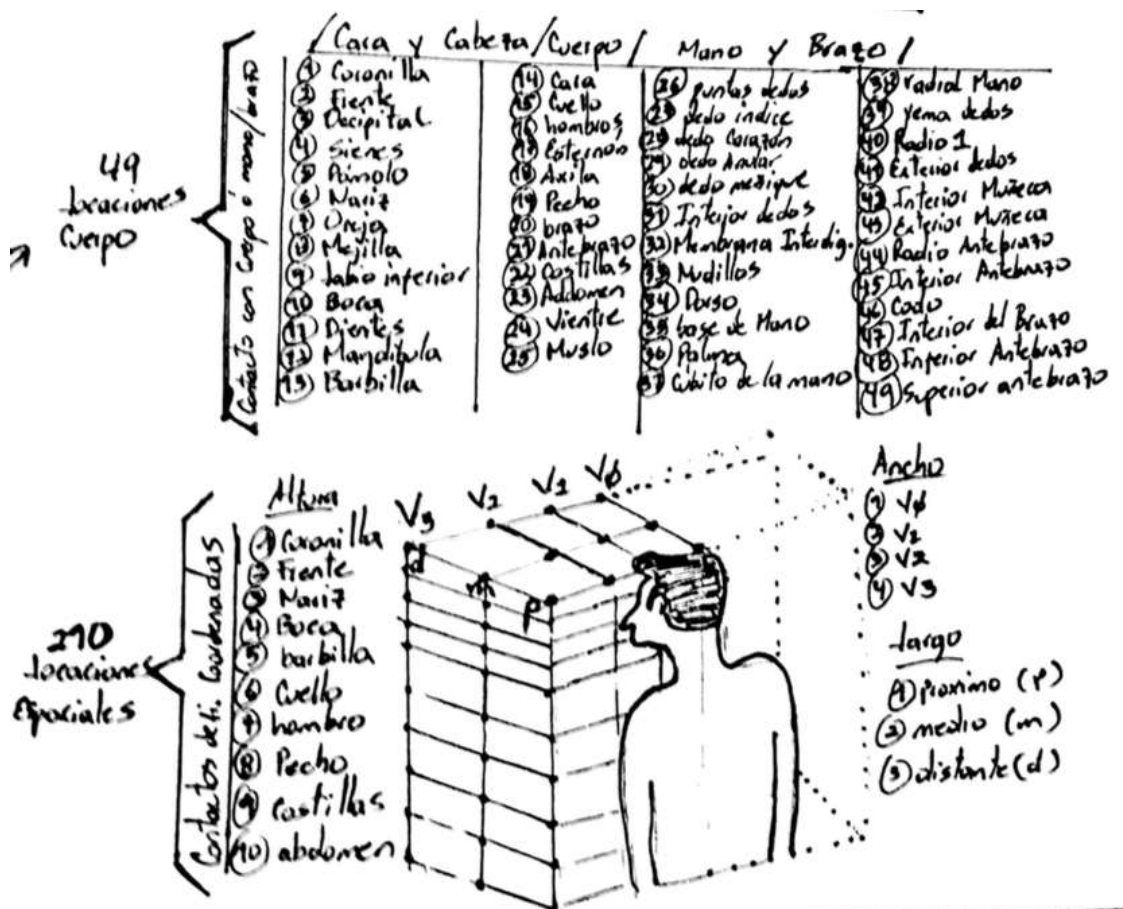 / Cara y Cabeza / Cuerpo / Mano y Brazo /
49
locaciones
Cuerpo
Contacto con Cuerpo ó mano/brazo
1 Coronilla
2 Frente
3 Occipital
4 Sienes
5 Pómulo
6 Nariz
7 Oreja
8 Mejilla
9 labio inferior
10 Boca
11 Dientes
12 Mandibula
13 Barbilla
14 Cara
15 Cuello
16 hombros
17 Esternón
18 Axila
19 Pecho
20 brazo
21 Antebrazo
22 Costillas
23 Addomen
24 Vientre
25 Muslo
26 puntas dedos
dedo indice
28 dedo Corazón
29 dedo Anular
30 dedo meñique
31 Interior dedos
32 Membrana Interdig.
33 Nudillos
34 Dorso
35 base de Mano
36 Palma
37 Cúbito de la mano
38 radial Mano
39 yema dedos
40 Radio 1
41 Exterior dedos
42 Interior Muñeca
43 Exterior Muñeca
44 Radio Antebrazo
45 Interior Antebrazo
46 Codo
47 Interior del Brazo
48 Inferior Antebrazo
49 Superior antebrazo
locaciones
Espaciales
Contactos Coordenadas
Altura
1 Coronilla
2 Frente
3 Nariz
4 Boca
5 barbilla
6 Cuello
7 hombro
8 Pecho
9 costillas
10 abdomen
V3 V2 V1 Vø
d
m
p
Ancho
1 Vø
2 V1
3 V2
4 V3
largo
1 proximo (p)
2 medio (m)
3 distante (d)